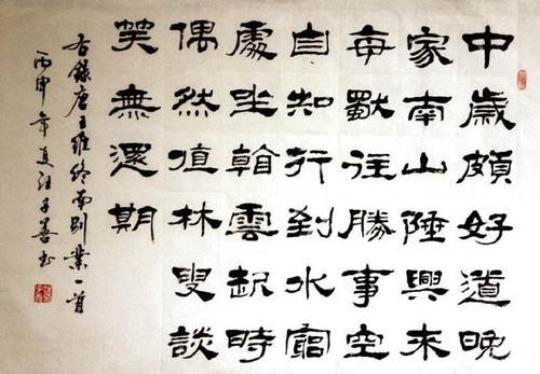 中歲頗好道晚
家南山陲興來
每獨往勝事空
自知行到水窮
處坐看雲起時
偶然值林叟談
笑無還期
右錄唐王維終南別業一首
丙申年汪子善书